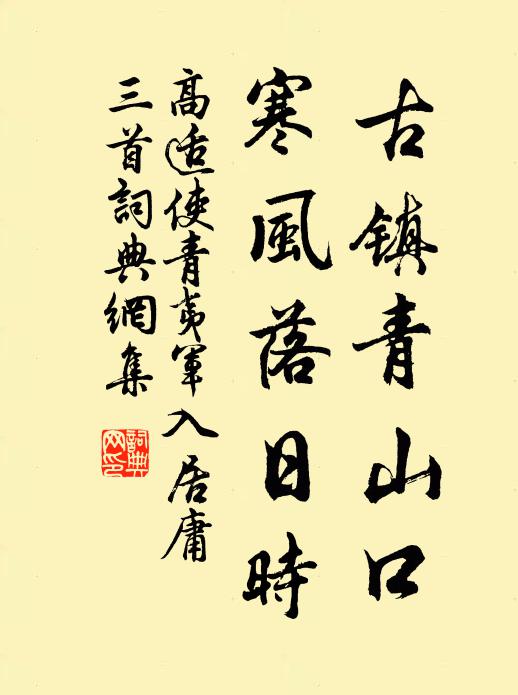 古镇青山口
寒風落日時
高适使青夷軍入居庸
三首詞典網集
詞典
网印